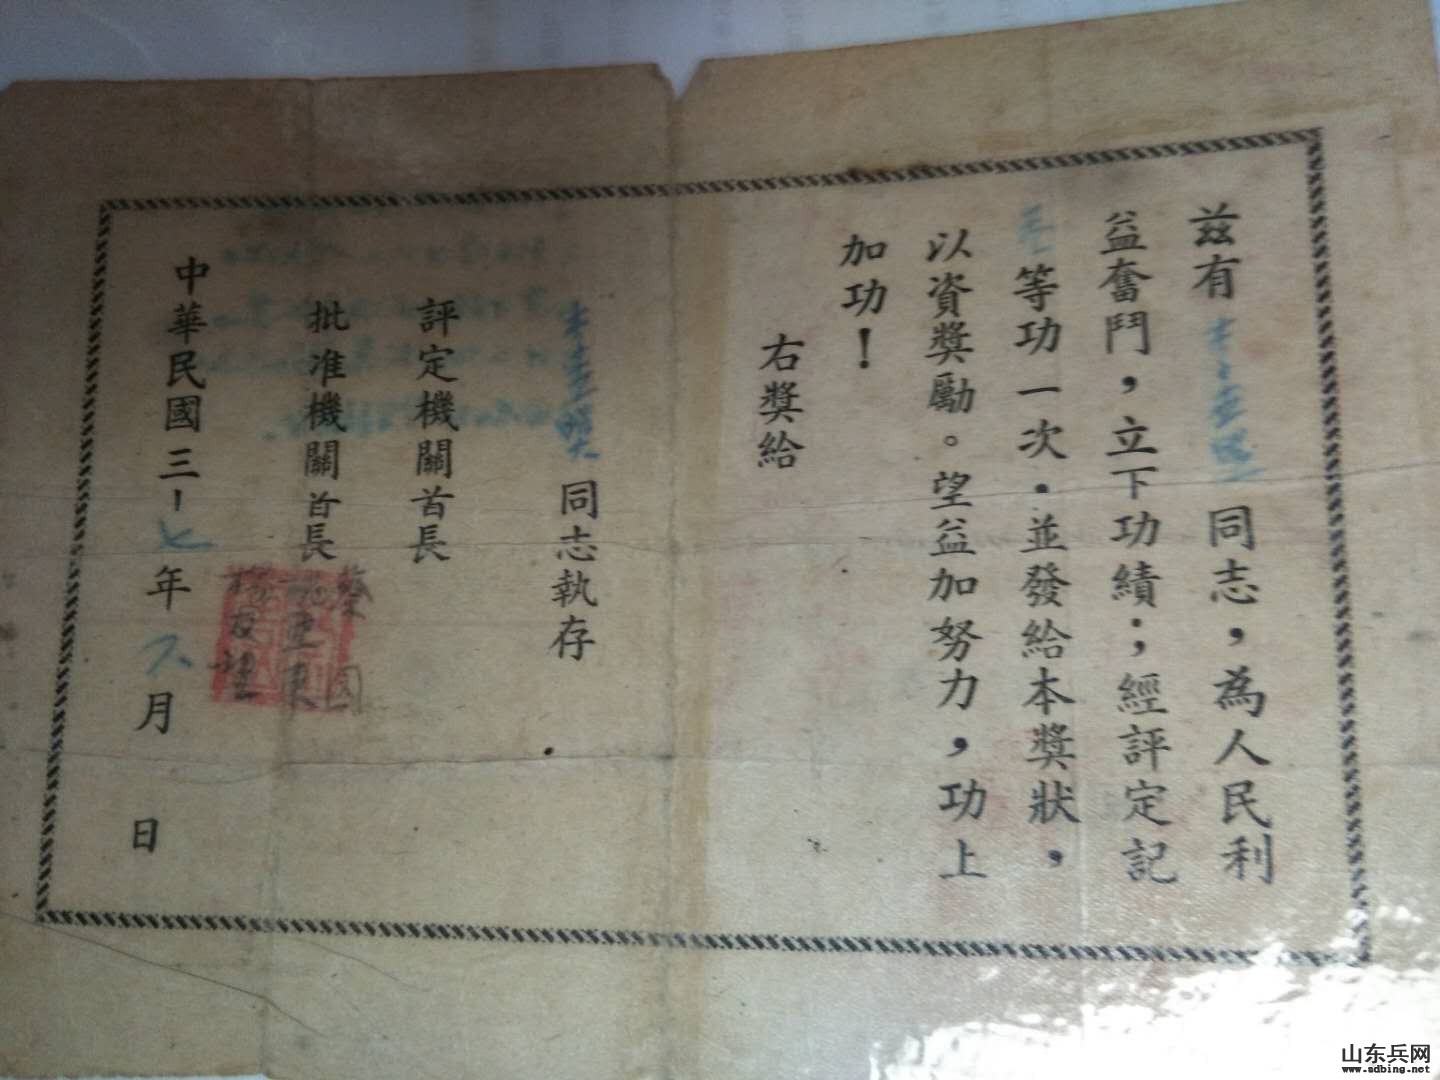 兹有
同志，為人民利
益奮鬥，立下功績；經評定記
等功一次．並發給本奬狀，
以資奬勵。望益加努力，功上
加功！
右奬給
同志執存
評定機關首長
批准機關首長
中華民國三十七年六月 日
山东兵网
www.sdbing.net